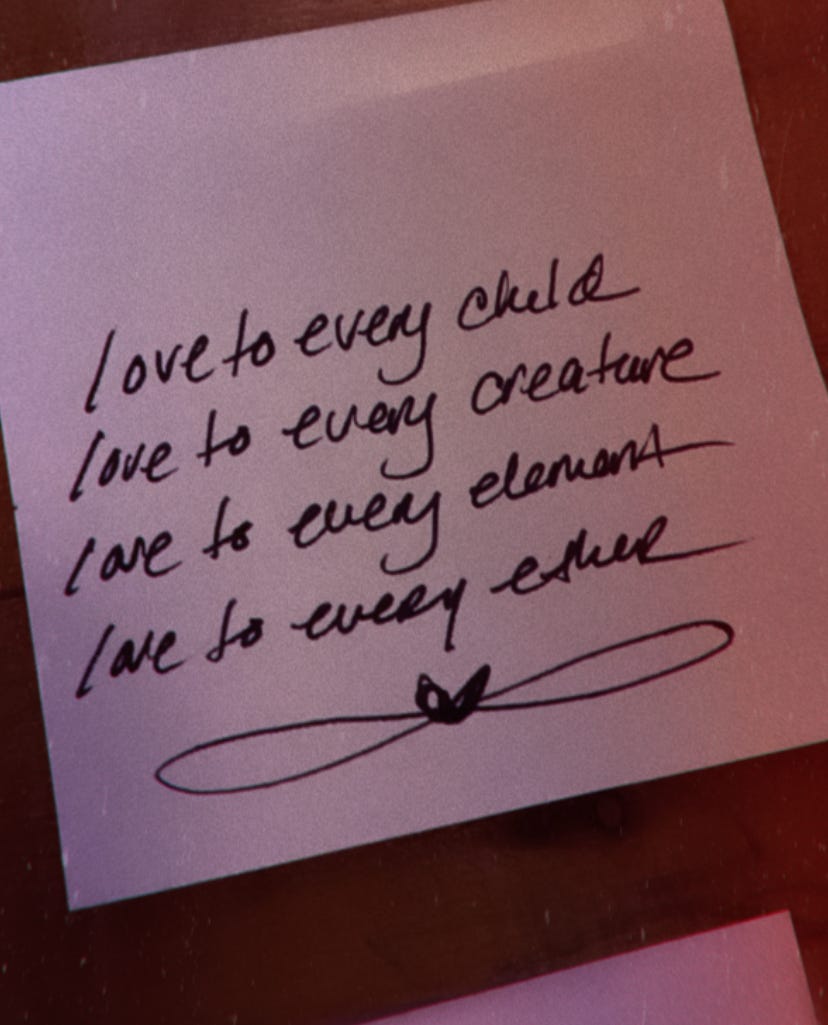 love to every child
love to every creature
love to every element
love to every ether